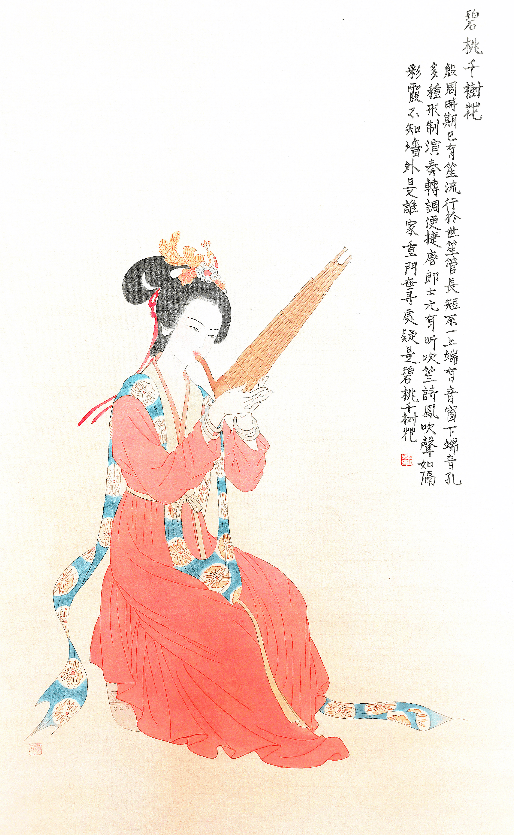 碧桃千樹花
殷周時期已有笙流行於世笙管長短不一上端有音窗下端音孔
多種形制演奏轉調便捷唐郎士元有听吹笙詩鳳吹聲如隔
彩霞不知墻外是誰家重門無尋處疑是碧桃千樹花